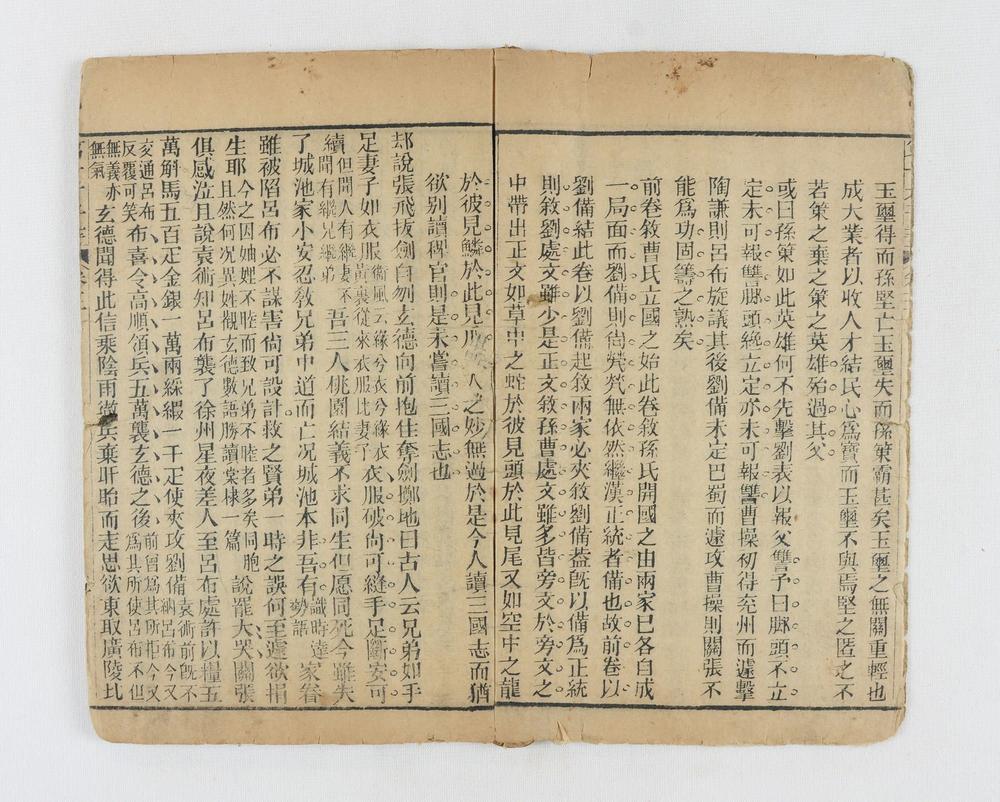 玉璽得而孫堅亡玉璽失而孫策霸甚矣玉璽之無關重輕也
成大業者以收人才結民心爲寶而玉璽不與焉堅之匿之不
若策之棄之策之英雄殆過其父
或曰孫策如此英雄何不先擊劉表以報父讐予曰腳頭不立
定未可報讐腳頭纔立定亦未可報讐曹操初得兗州而遽擊
陶謙則呂布旋議其後劉備未定巴蜀而遽攻曹操則關張不
能爲功固籌之熟矣
前卷敘曹氏立國之始此卷敘孫氏開國之由兩家已各自成
一局面而劉備則尙煢煢無依然繼漢正統者備也故前卷以
劉備結此卷以劉備起敘兩家必夾敘劉備葢旣以備爲正統
則敘劉處文雖少是正文敘孫曹處文雖多皆旁文於旁文之
中帶出正文如草中之蛇於彼見頭於此見尾又如空中之龍
於彼見鱗於此見爪 人之妙無過於是今人讀三國志而猶
欲別讀稗官則是未嘗讀三國志也
却說張飛拔劍自刎玄德向前抱住奪劍擲地曰古人云兄弟如手
足妻子如衣服衛風云緣兮衣兮緣衣黃裏從來衣服比妻子衣服破尙可縫手足斷安可
續但聞人有繼妻不聞有繼兄繼弟吾三人桃園結義不求同生但愿同死今雖失
了城池家小安忍敎兄弟中道而亡况城池本非吾有識時達勢語家眷
雖被陷呂布必不謀害尙可設計救之賢弟一時之誤何至遽欲捐
生耶今之因妯娌不睦而致兄弟不睦者多矣同胞且然何况異姓觀玄德數語勝讀棠棣一篇說罷大哭關張
俱感泣且說袁術知呂布襲了徐州星夜差人至呂布處許以糧五
萬斛馬五百疋金銀一萬兩綵緞一千疋使夾攻劉備袁術前旣不納呂布今又
交通呂布前曾爲其所拒今又爲其所使呂布不但反覆可笑布喜令高順領兵五萬襲玄德之後
無義亦無氣玄德聞得此信乘陰雨撤兵棄盱眙而走思欲東取廣陵比